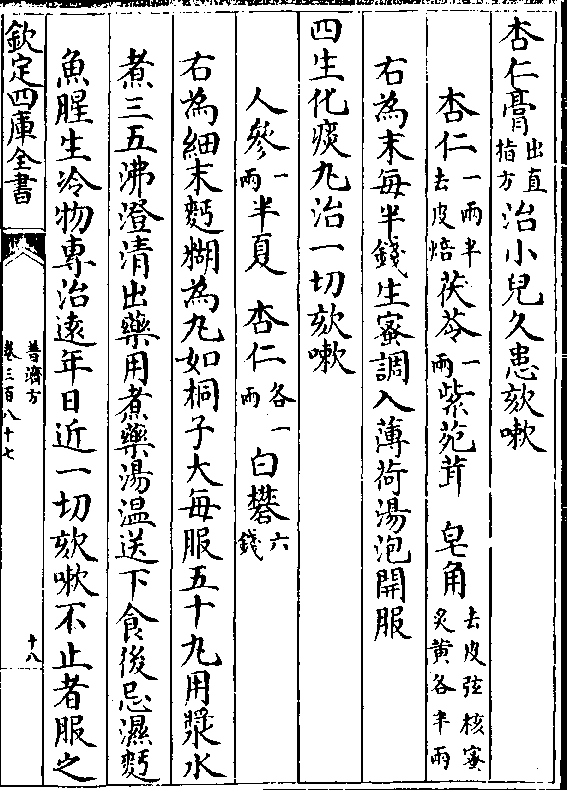 杏仁膏出直指方治小兒久患欬嗽
杏仁一兩半去皮焙茯苓一兩紫苑茸 皂角去皮弦核蜜炙黄各半兩
右為末每半錢生蜜調入薄荷湯泡開服
四生化痰丸治一切欬嗽
人參一兩半夏 杏仁各一兩白礬六錢
右為細末麪糊為丸如桐子大每服五十丸用漿水
煮三五沸澄清出藥用煮藥湯温送下食後忌濕麪
魚腥生冷物專治逺年日近一切欬嗽不止者服之
欽定四庫全書
普濟方
卷三百八十七
十八